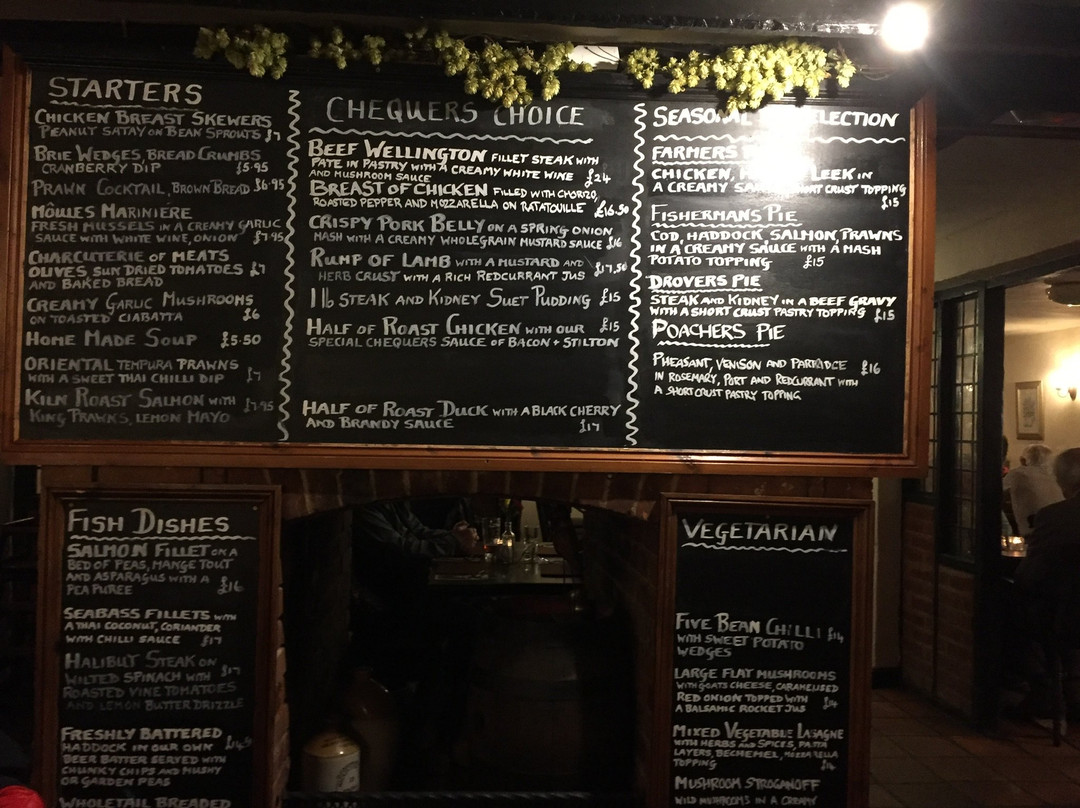 STARTERS
CHICKEN BREAST SKEWERS
PEANUT SATAY ON BEAN SPROUTS £7
BRIE WEDGES, BREAD CRUMBS
CRANBERRY DIP £5.95
PRAWN COCKTAIL, BROWN BREAD £6.95
MOULES MARINIERE
FRESH MUSSELS IN A CREAMY GARLIC
SAUCE WITH WHITE WINE, ONION £7.95
CHARCUTERIE OF MEATS
OLIVES, SUN DRIED TOMATOES £7
AND BAKED BREAD
CREAMY GARLIC MUSHROOMS
ON TOASTED CIABATTA £6
HOME MADE SOUP £5.50
ORIENTAL TEMPURA PRAWNS
WITH A SWEET THAI CHILLI DIP £7
KILN ROAST SALMON WITH £7.95
KING PRAWNS, LEMON MAYO
CHEQUERS CHOICE
BEEF WELLINGTON FILLET STEAK WITH
PATE IN PASTRY WITH A CREAMY WHITE WINE
AND MUSHROOM SAUCE £24
BREAST OF CHICKEN FILLED WITH CHORIZO,
ROASTED PEPPER AND MOZZARELLA ON RATATOUILLE £16.50
CRISPY PORK BELLY ON A SPRING ONION
MASH WITH A CREAMY WHOLEGRAIN MUSTARD SAUCE £16
RUMP OF LAMB WITH A MUSTARD AND
HERB CRUST WITH A RICH REDCURRANT JUS £17.50
1lb STEAK AND KIDNEY SUET PUDDING £15
HALF OF ROAST CHICKEN WITH OUR £15
SPECIAL CHEQUERS SAUCE OF BACON + STILTON
HALF OF ROAST DUCK WITH A BLACK CHERRY
AND BRANDY SAUCE £17
SEASONAL
FARMERS
CHICKEN, LEEK IN
A CREAMY SHORT CRUST TOPPING
£15
FISHERMANS PIE
COD, HADDOCK, SALMON, PRAWNS
IN A CREAMY SAUCE WITH A MASH
POTATO TOPPING £15
DROVERS PIE
STEAK AND KIDNEY IN A BEEF GRAVY
WITH A SHORT CRUST PASTRY TOPPING £15
POACHERS PIE
PHEASANT, VENISON AND PARTRIDGE £16
IN ROSEMARY, PORT AND REDCURRANT WITH
A SHORT CRUST PASTRY TOPPING
FISH DISHES
SALMON FILLET ON A
BED OF PEAS, MANGE TOUT
AND ASPARAGUS WITH A
PEA PUREE £16
SEABASS FILLETS WITH
A THAI COCONUT, CORIANDER
WITH CHILLI SAUCE £17
HALIBUT STEAK ON
WILTED SPINACH WITH £17
ROASTED VINE TOMATOES
AND LEMON BUTTER DRIZZLE
FRESHLY BATTERED
HADDOCK IN OUR OWN
BEER BATTER SERVED WITH
CHUNKY CHIPS AND MUSHY
OR GARDEN PEAS
WHOLETAIL BREADED
VEGETARIAN
FIVE BEAN CHILLI £14
WITH SWEET POTATO
WEDGES
LARGE FLAT MUSHROOMS
WITH GOATS CHEESE, CARAMELISED
RED ONION TOPPED WITH
A BALSAMIC ROCKET JUS £14
MIXED VEGETABLE LASAGNE
WITH HERBS AND SPICES, PASTA
LAYERS, BECHEMEL, MOZZARELLA
TOPPING £14
MUSHROOM STROGANOFF
WILD MUSHROOMS IN A CREAMY